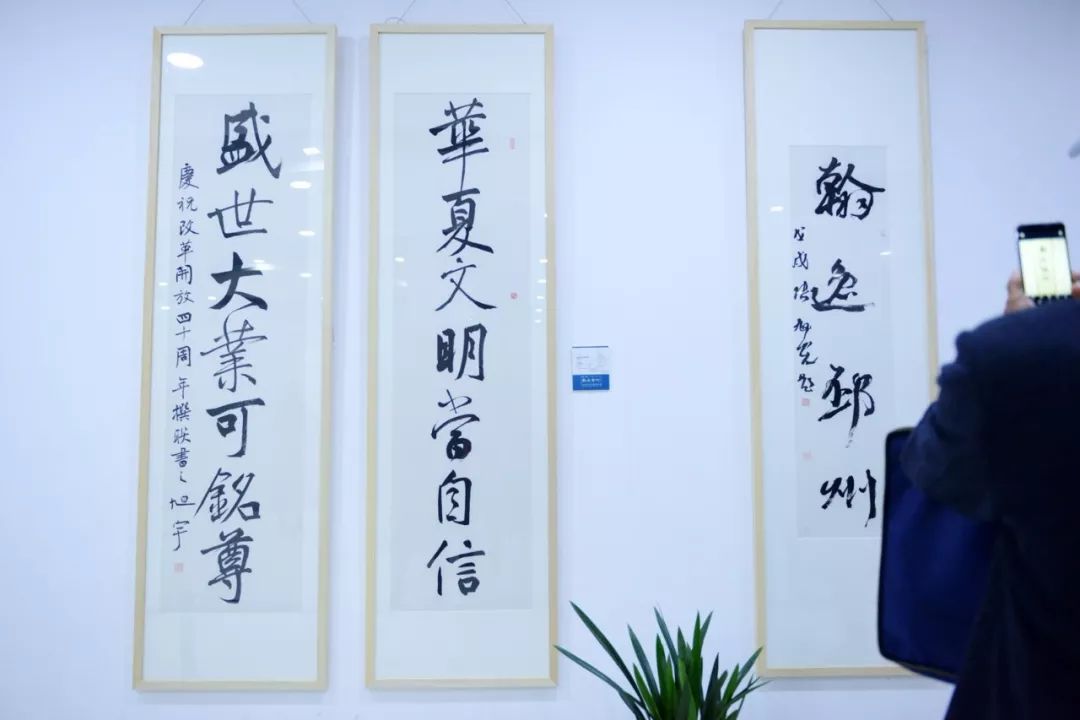 華夏文明當自信
盛世大業可銘尊
慶祝改革開放四十周年撰联書之旭宇
翰逸邳州
戊戌張旭光題